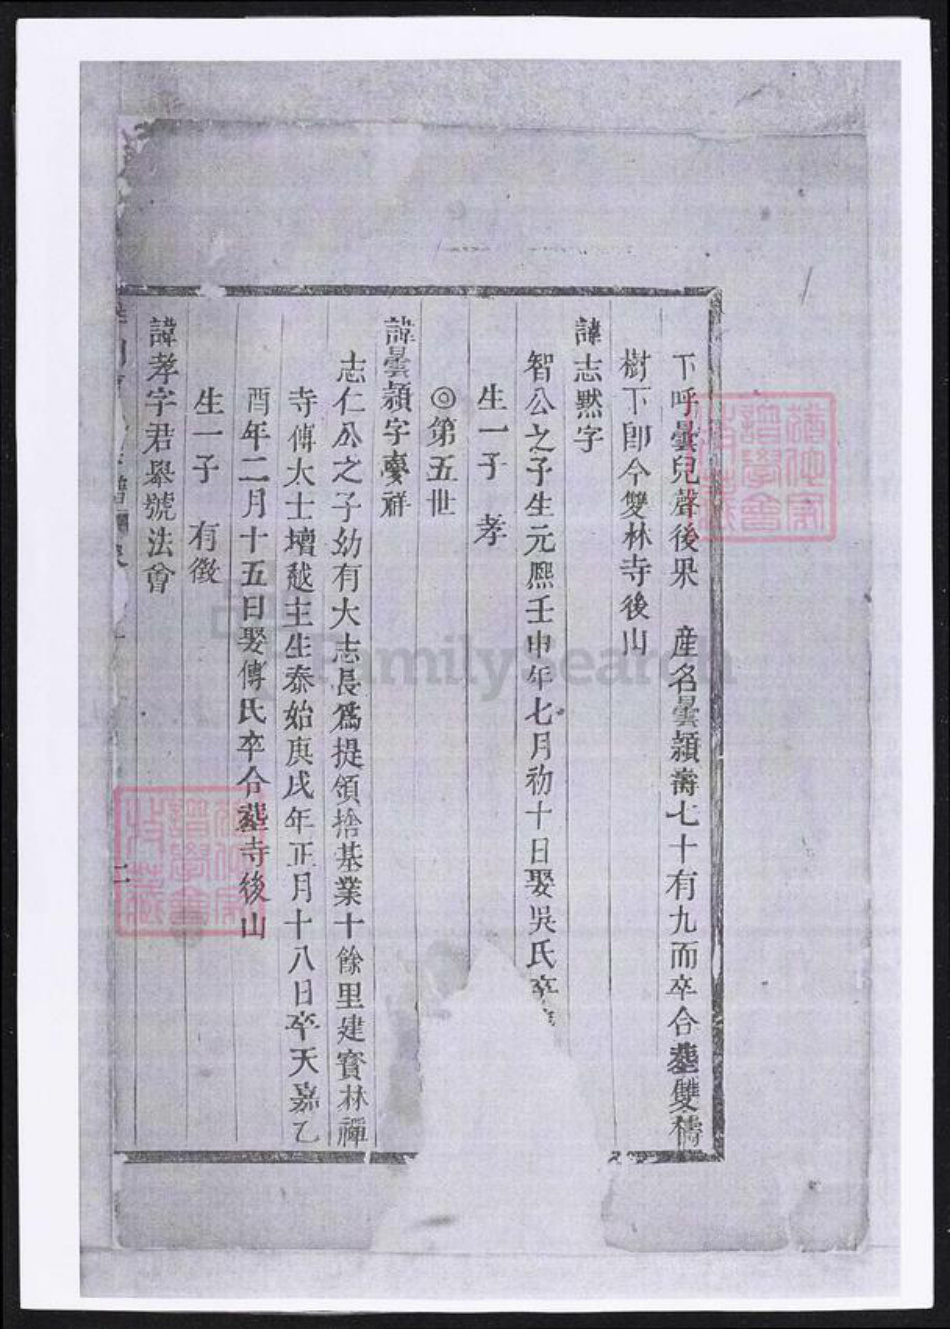 下呼曇兒聲後果 産名曇頴壽七十有九而卒合塟雙檮
樹下卽今雙林寺後山
諱志黙字
智公之子生元熈壬申年七月初十日娶吳氏卒
生一子 孝
◎第五世
諱曇頴字夣祥
志仁公之子幼有大志長爲提領捨基業十餘里建寳林禪
寺傳大士壇越主生泰始庚戌年正月十八日卒天嘉乙
酉年二月十五日娶傅氏卒合塟寺後山
生一子 有徵
諱孝字君舉號法曾
二
FamilySearch